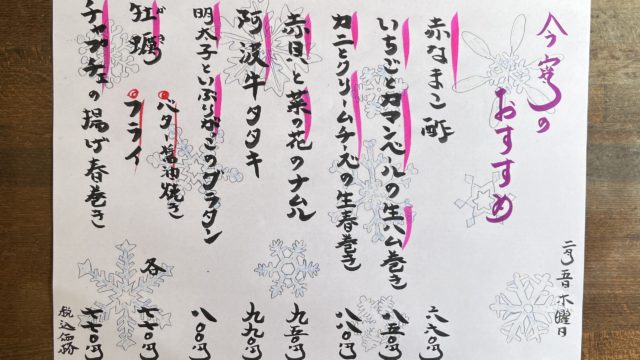 今宵の
おすすめ
二月五日木曜日
赤なまこ酢 六六〇円
いちごとカマンベールの生ハム巻き 八五〇円
カニとクリームチーズの生春巻き 八八〇円
赤貝と菜の花のナムル 九五〇円
阿波牛タタキ 九九〇円
明太子といぶりがっこのグラタン 八〇〇円
牡蠣 バター醤油焼き
がき
フライ 各 七七〇円
チャプチェの揚げ春巻き 七七〇円
税込価格